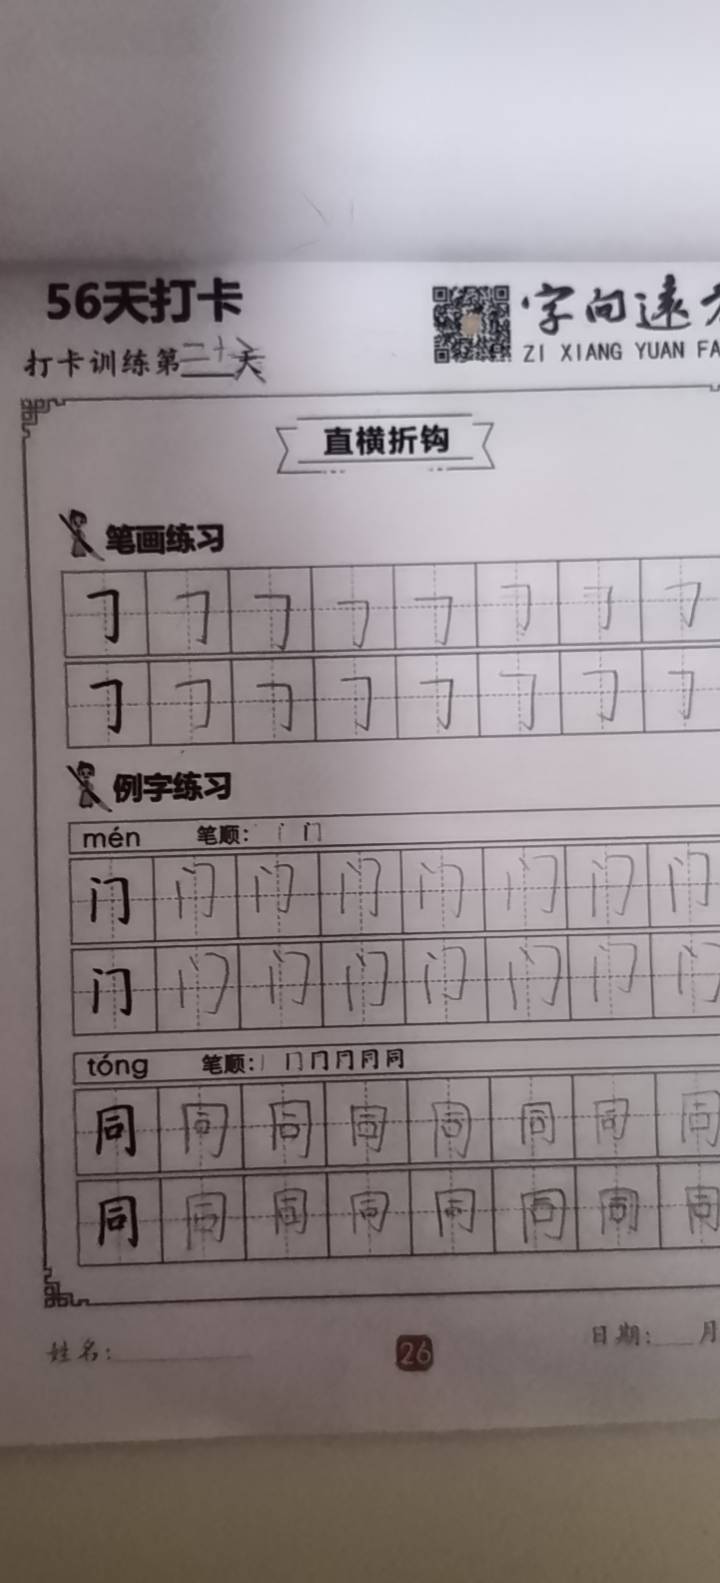 56天打卡
字向远
打卡训练第二十天
ZI XIANG YUAN FA
直横折钩
笔画练习
例字练习
mén 笔顺:
门 门 门 门 门 门 门 门
门 门 门 门 门 门 门 门
tóng 笔顺:
同 同 同 同 同 同 同 同
同 同 同 同 同 同 同 同
姓名: 日期: 月
26